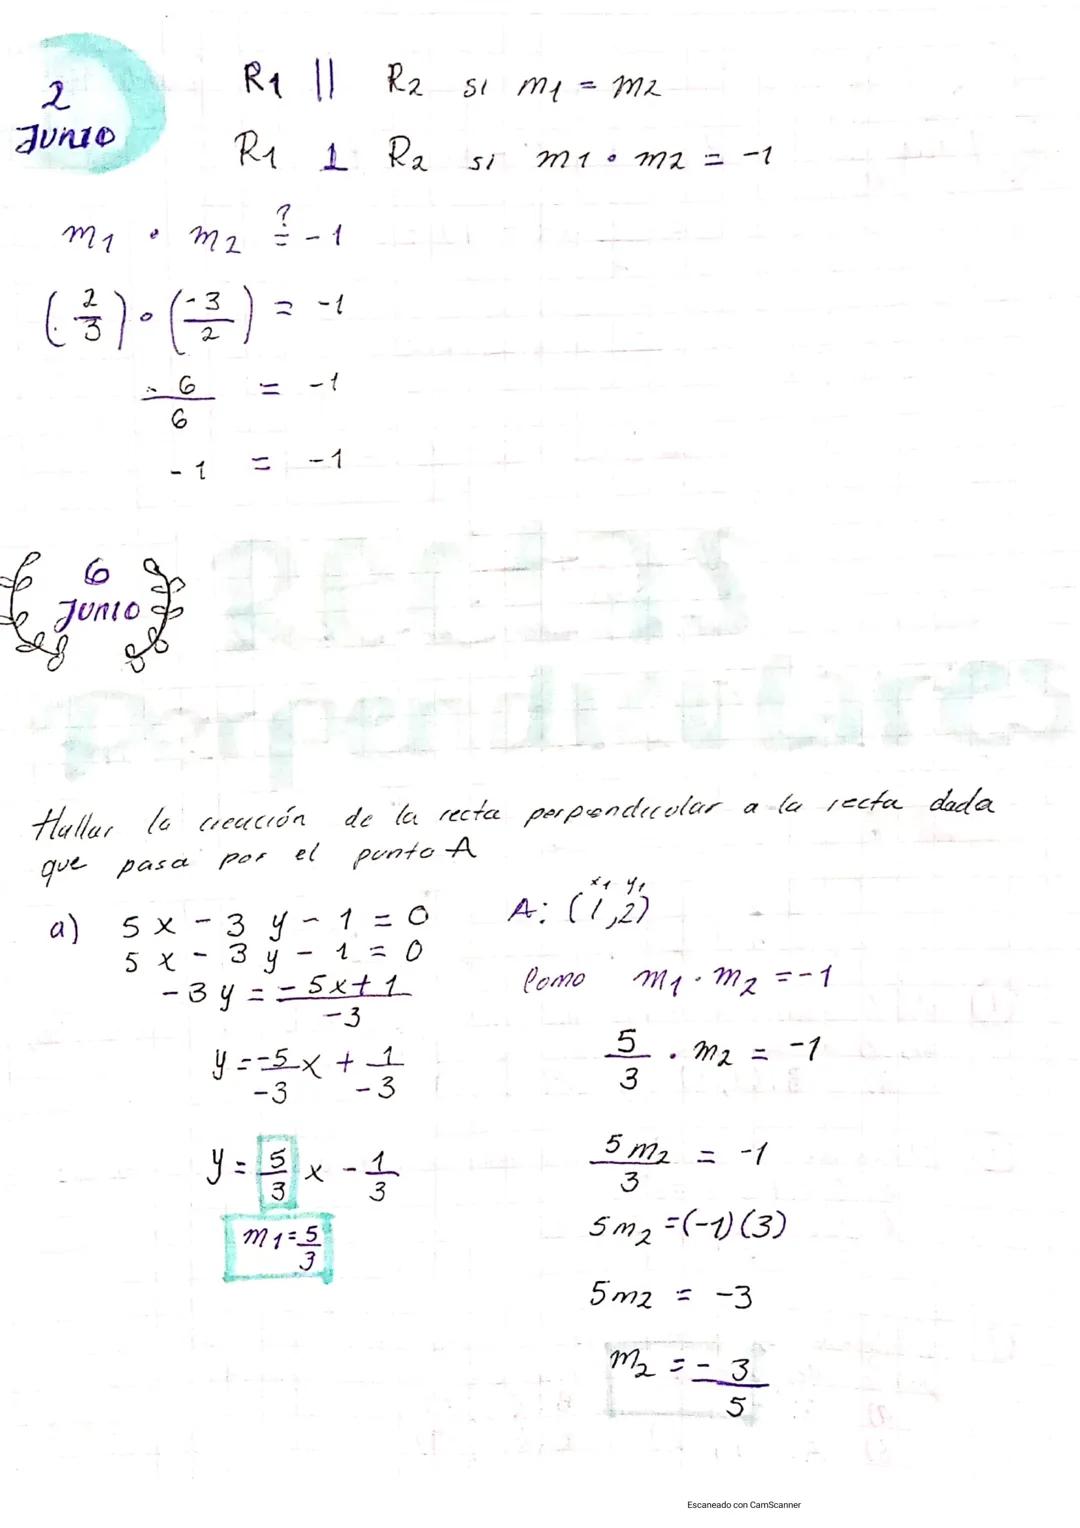 2
JUNIO
R1 || R2 si m1 = m2
R1 ⊥ R2 si m1 • m2 = -1
m1 • m2 ≟ -1
(2/3) • (-3/2) = -1
-6/6 = -1
-1 = -1
6
JUNIO
Rectas
Perpendiculares
Hallar la ecuación de la recta perpendicular a la recta dada
que pasa por el punto A
a) 5x - 3y - 1 = 0
5x - 3y - 1 = 0
-3y = -5x + 1 / -3
y = -5/-3 x + 1/-3
y = 5/3 x - 1/3
m1 = 5/3
x1 y1
A: (1,2)
Como m1 · m2 = -1
5/3 · m2 = -1
5m2/3 = -1
5m2 = (-1)(3)
5m2 = -3
m2 = -3/5
Escaneado con CamScanner